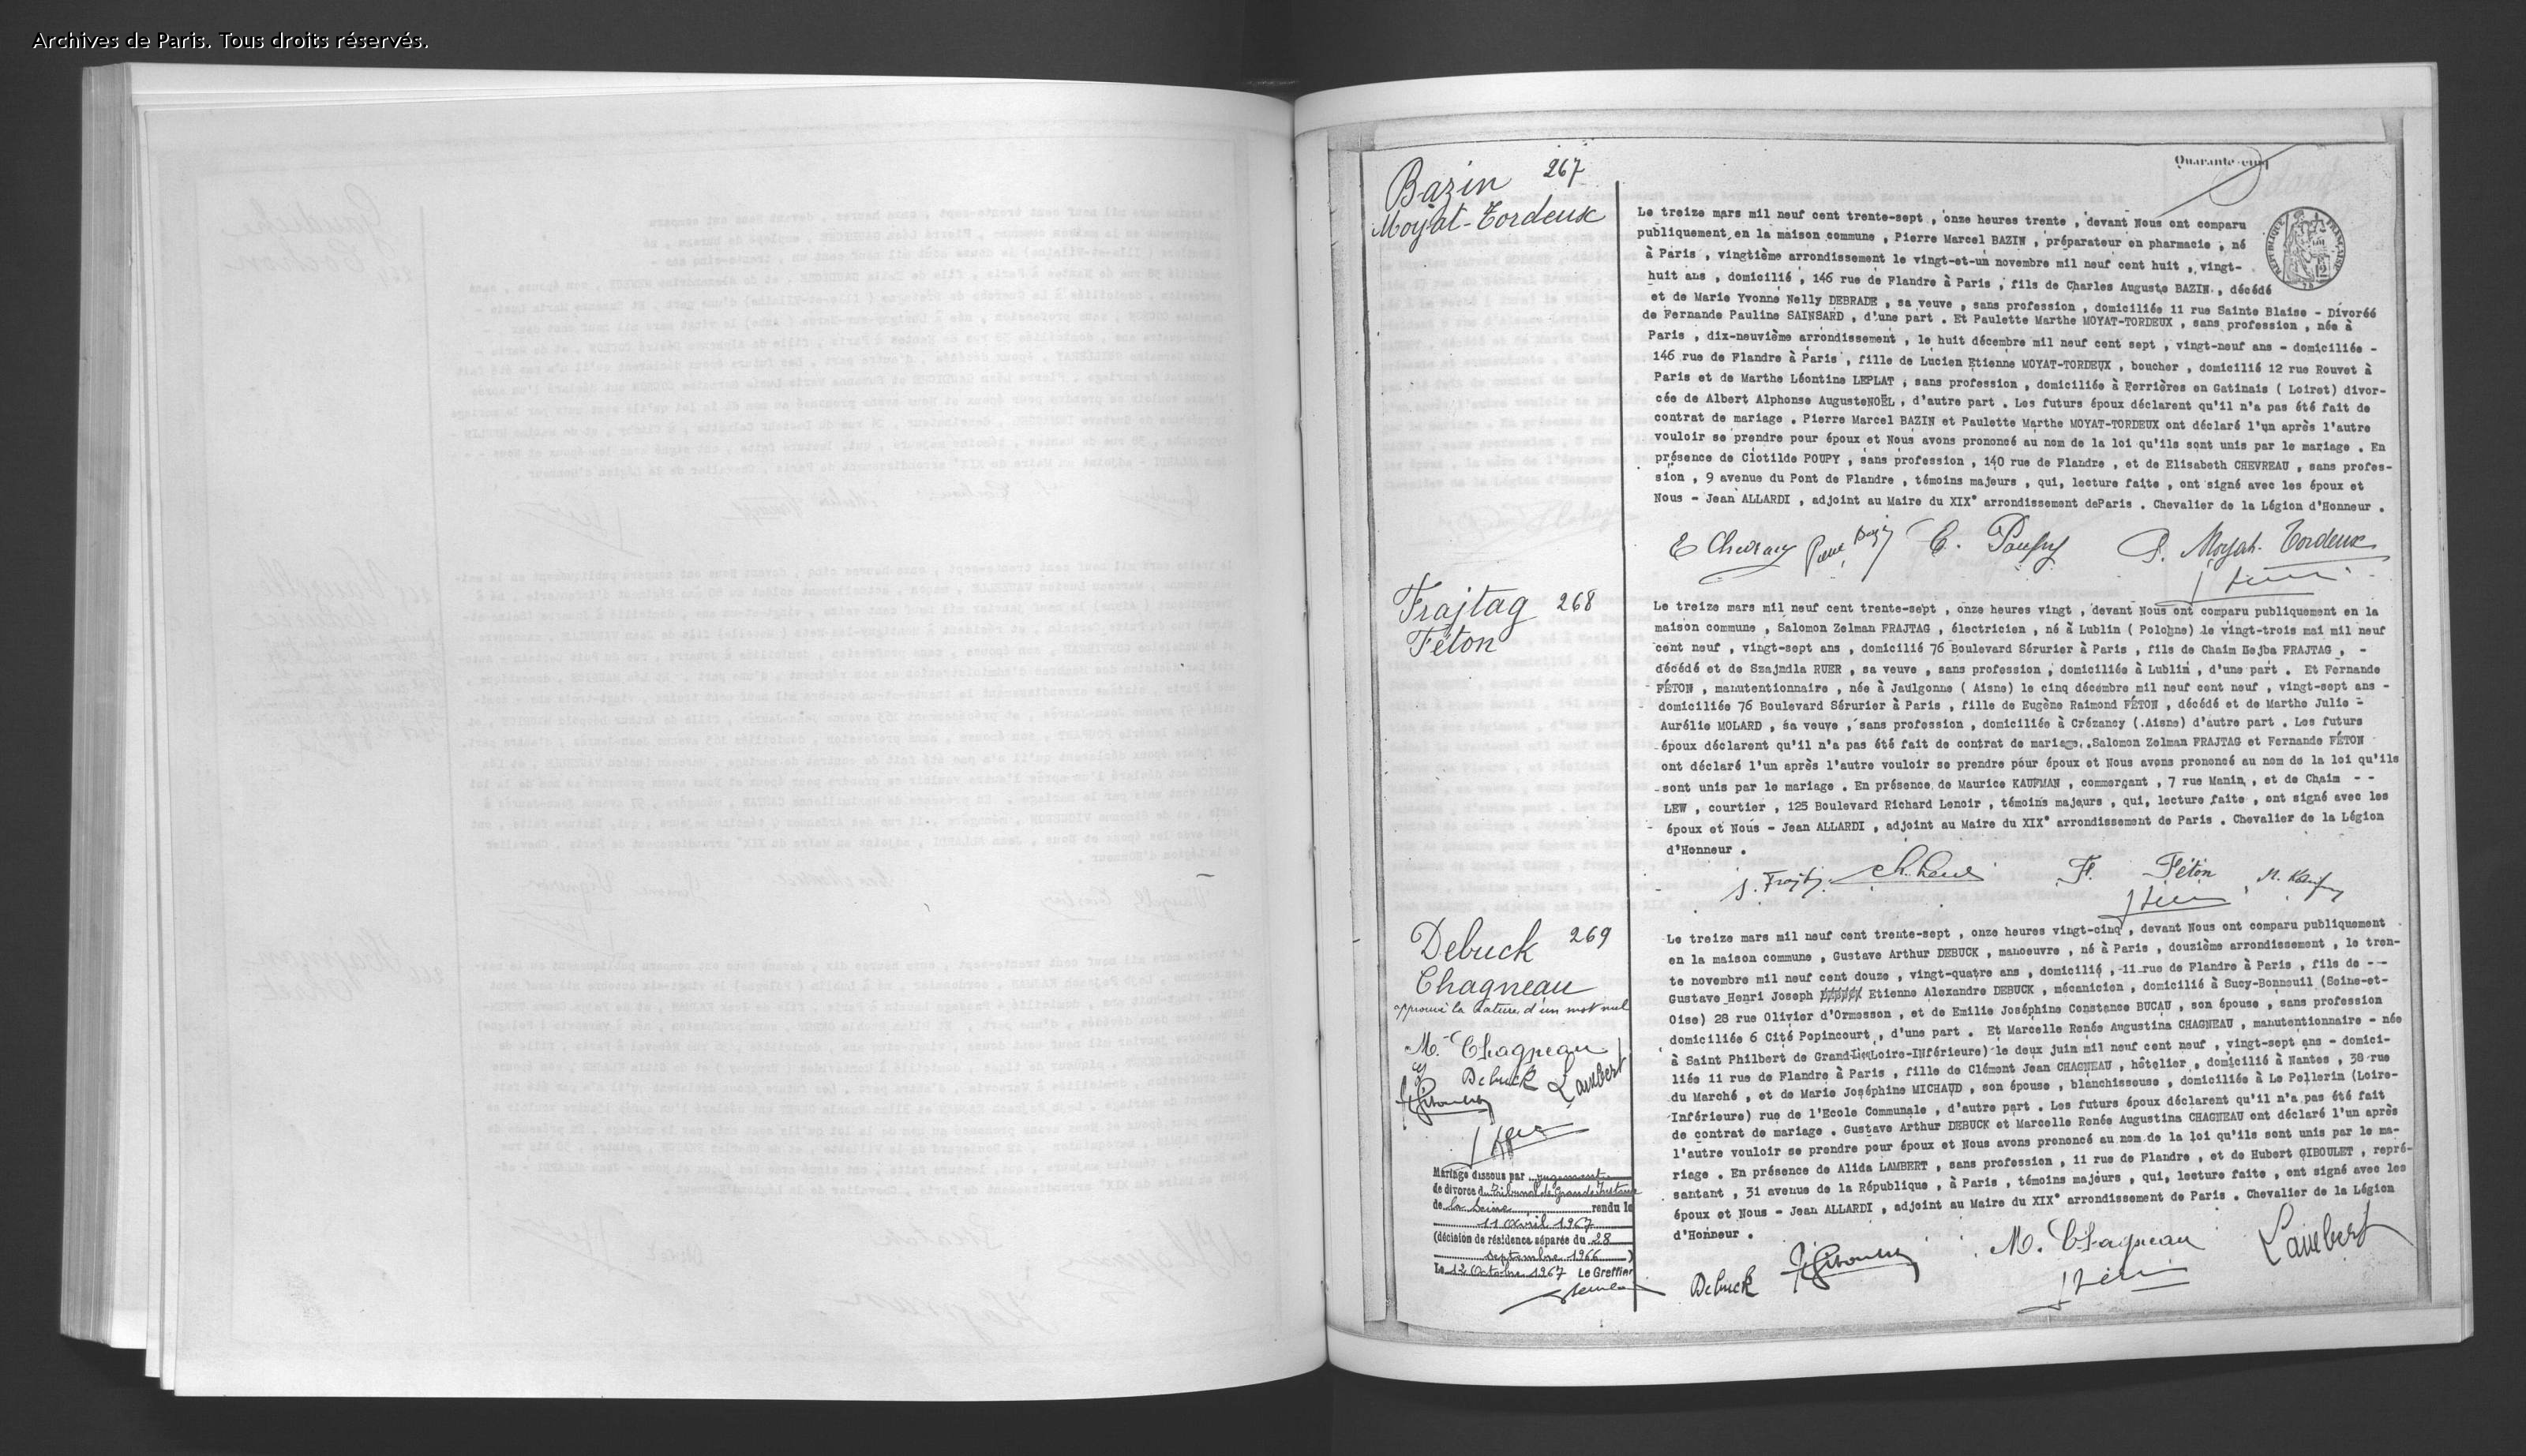 Archives de Paris. Tous droits réservés.
Quarante-cinq
Bazin 267
Moyat-Tordeux
Le treize mars mil neuf cent trente-sept , onze heures trente , devant Nous ont comparu
publiquement en la maison commune , Pierre Marcel BAZIN , préparateur en pharmacie , né
à Paris , vingtième arrondissement le vingt-et-un novembre mil neuf cent huit , vingt-
huit ans , domicilié , 146 rue de Flandre à Paris , fils de Charles Auguste BAZIN , décédé
et de Marie Yvonne Nelly DEBRADE , sa veuve , sans profession , domiciliée 11 rue Sainte Blaise - Divorcé
de Fernande Pauline SAINSARD , d'une part . Et Paulette Marthe MOYAT-TORDEUX , sans profession , née à
Paris , dix-neuvième arrondissement , le huit décembre mil neuf cent sept , vingt-neuf ans - domiciliée -
146 rue de Flandre à Paris , fille de Lucien Etienne MOYAT-TORDEUX , boucher , domicilié 12 rue Rouvet à
Paris et de Marthe Léontine LEPLAT , sans profession , domiciliée à Ferrières en Gatinais ( Loiret) divor-
cée de Albert Alphonse AugusteNOËL , d'autre part . Les futurs époux déclarent qu'il n'a pas été fait de
contrat de mariage . Pierre Marcel BAZIN et Paulette Marthe MOYAT-TORDEUX ont déclaré l'un après l'autre
vouloir se prendre pour époux et Nous avons prononcé au nom de la loi qu'ils sont unis par le mariage . En
présence de Clotilde POUPY , sans profession , 140 rue de Flandre , et de Elisabeth CHEVREAU , sans profes-
sion , 9 avenue du Pont de Flandre , témoins majeurs , qui, lecture faite , ont signé avec les époux et
Nous - Jean ALLARDI , adjoint au Maire du XIX° arrondissement deParis . Chevalier de la Légion d'Honneur .
P. Moyat-Tordeux
Frajtag 268
Féton
Le treize mars mil neuf cent trente-sept , onze heures vingt , devant Nous ont comparu publiquement en la
maison commune , Salomon Zelman FRAJTAG , électricien , né à Lublin ( Pologne) le vingt-trois mai mil neuf
cent neuf , vingt-sept ans , domicilié 76 Boulevard Sérurier à Paris , fils de Chaim Hejba FRAJTAG , -
décédé et de Szajndla RUER , sa veuve , sans profession , domiciliée à Lublin , d'une part . Et Fernande
FÉTON , manutentionnaire , née à Jaulgonne ( Aisne) le cinq décembre mil neuf cent neuf , vingt-sept ans -
domiciliée 76 Boulevard Sérurier à Paris , fille de Eugène Raimond FÉTON , décédé et de Marthe Julie -
Aurélie MOLARD , sa veuve , sans profession , domiciliée à Crézancy ( Aisne) d'autre part . Les futurs
époux déclarent qu'il n'a pas été fait de contrat de mariage. .Salomon Zelman FRAJTAG et Fernande FÉTON
ont déclaré l'un après l'autre vouloir se prendre pour époux et Nous avons prononcé au nom de la loi qu'ils
sont unis par le mariage . En présence de Maurice KAUFMAN , commerçant , 7 rue Manin , et de Chaim - -
LEW , courtier , 125 Boulevard Richard Lenoir , témoins majeurs , qui, lecture faite , ont signé avec les
époux et Nous - Jean ALLARDI , adjoint au Maire du XIX° arrondissement de Paris . Chevalier de la Légion
d'Honneur .
F. Féton
Debuck 269
Chagneau
approuvé la rature d'un mot nul
M. Chagneau
Debuck Lambert
Mariage dissous par jugement
de divorce du Tribunal de Grande Instance
de la Seine rendu le
11 Avril 1967
(décision de résidence séparée du 28
septembre 1966 )
Le 12 Octobre 1967 Le Greffier
Le treize mars mil neuf cent trente-sept , onze heures vingt-cinq , devant Nous ont comparu publiquement
en la maison commune , Gustave Arthur DEBUCK , manoeuvre , né à Paris , douzième arrondissement , le tren-
te novembre mil neuf cent douze , vingt-quatre ans , domicilié , 11 rue de Flandre à Paris , fils de --
Gustave Henri Joseph Etienne Alexandre DEBUCK , mécanicien , domicilié à Sucy-Bonneuil (Seine-et-
Oise) 28 rue Olivier d'Ormesson , et de Emilie Joséphine Constance BUCAU , son épouse , sans profession
domiciliée 6 Cité Popincourt , d'une part . Et Marcelle Renée Augustina CHAGNEAU , manutentionnaire - née
à Saint Philbert de Grand-Lieu(Loire-Inférieure) le deux juin mil neuf cent neuf , vingt-sept ans - domici-
liée 11 rue de Flandre à Paris , fille de Clément Jean CHAGNEAU , hôtelier , domicilié à Nantes , 38 rue
du Marché , et de Marie Joséphine MICHAUD , son épouse , blanchisseuse , domiciliée à Le Pellerin (Loire-
Inférieure) rue de l'Ecole Communale , d'autre part . Les futurs époux déclarent qu'il n'a pas été fait
de contrat de mariage . Gustave Arthur DEBUCK et Marcelle Renée Augustina CHAGNEAU ont déclaré l'un après
l'autre vouloir se prendre pour époux et Nous avons prononcé au nom de la loi qu'ils sont unis par le ma-
riage . En présence de Alida LAMBERT , sans profession , 11 rue de Flandre , et de Hubert GIBOULET , repré-
santant , 31 avenue de la République , à Paris , témoins majeurs , qui, lecture faite , ont signé avec les
époux et Nous - Jean ALLARDI , adjoint au Maire du XIX° arrondissement de Paris . Chevalier de la Légion
d'Honneur .
Debuck M. Chagneau Lambert